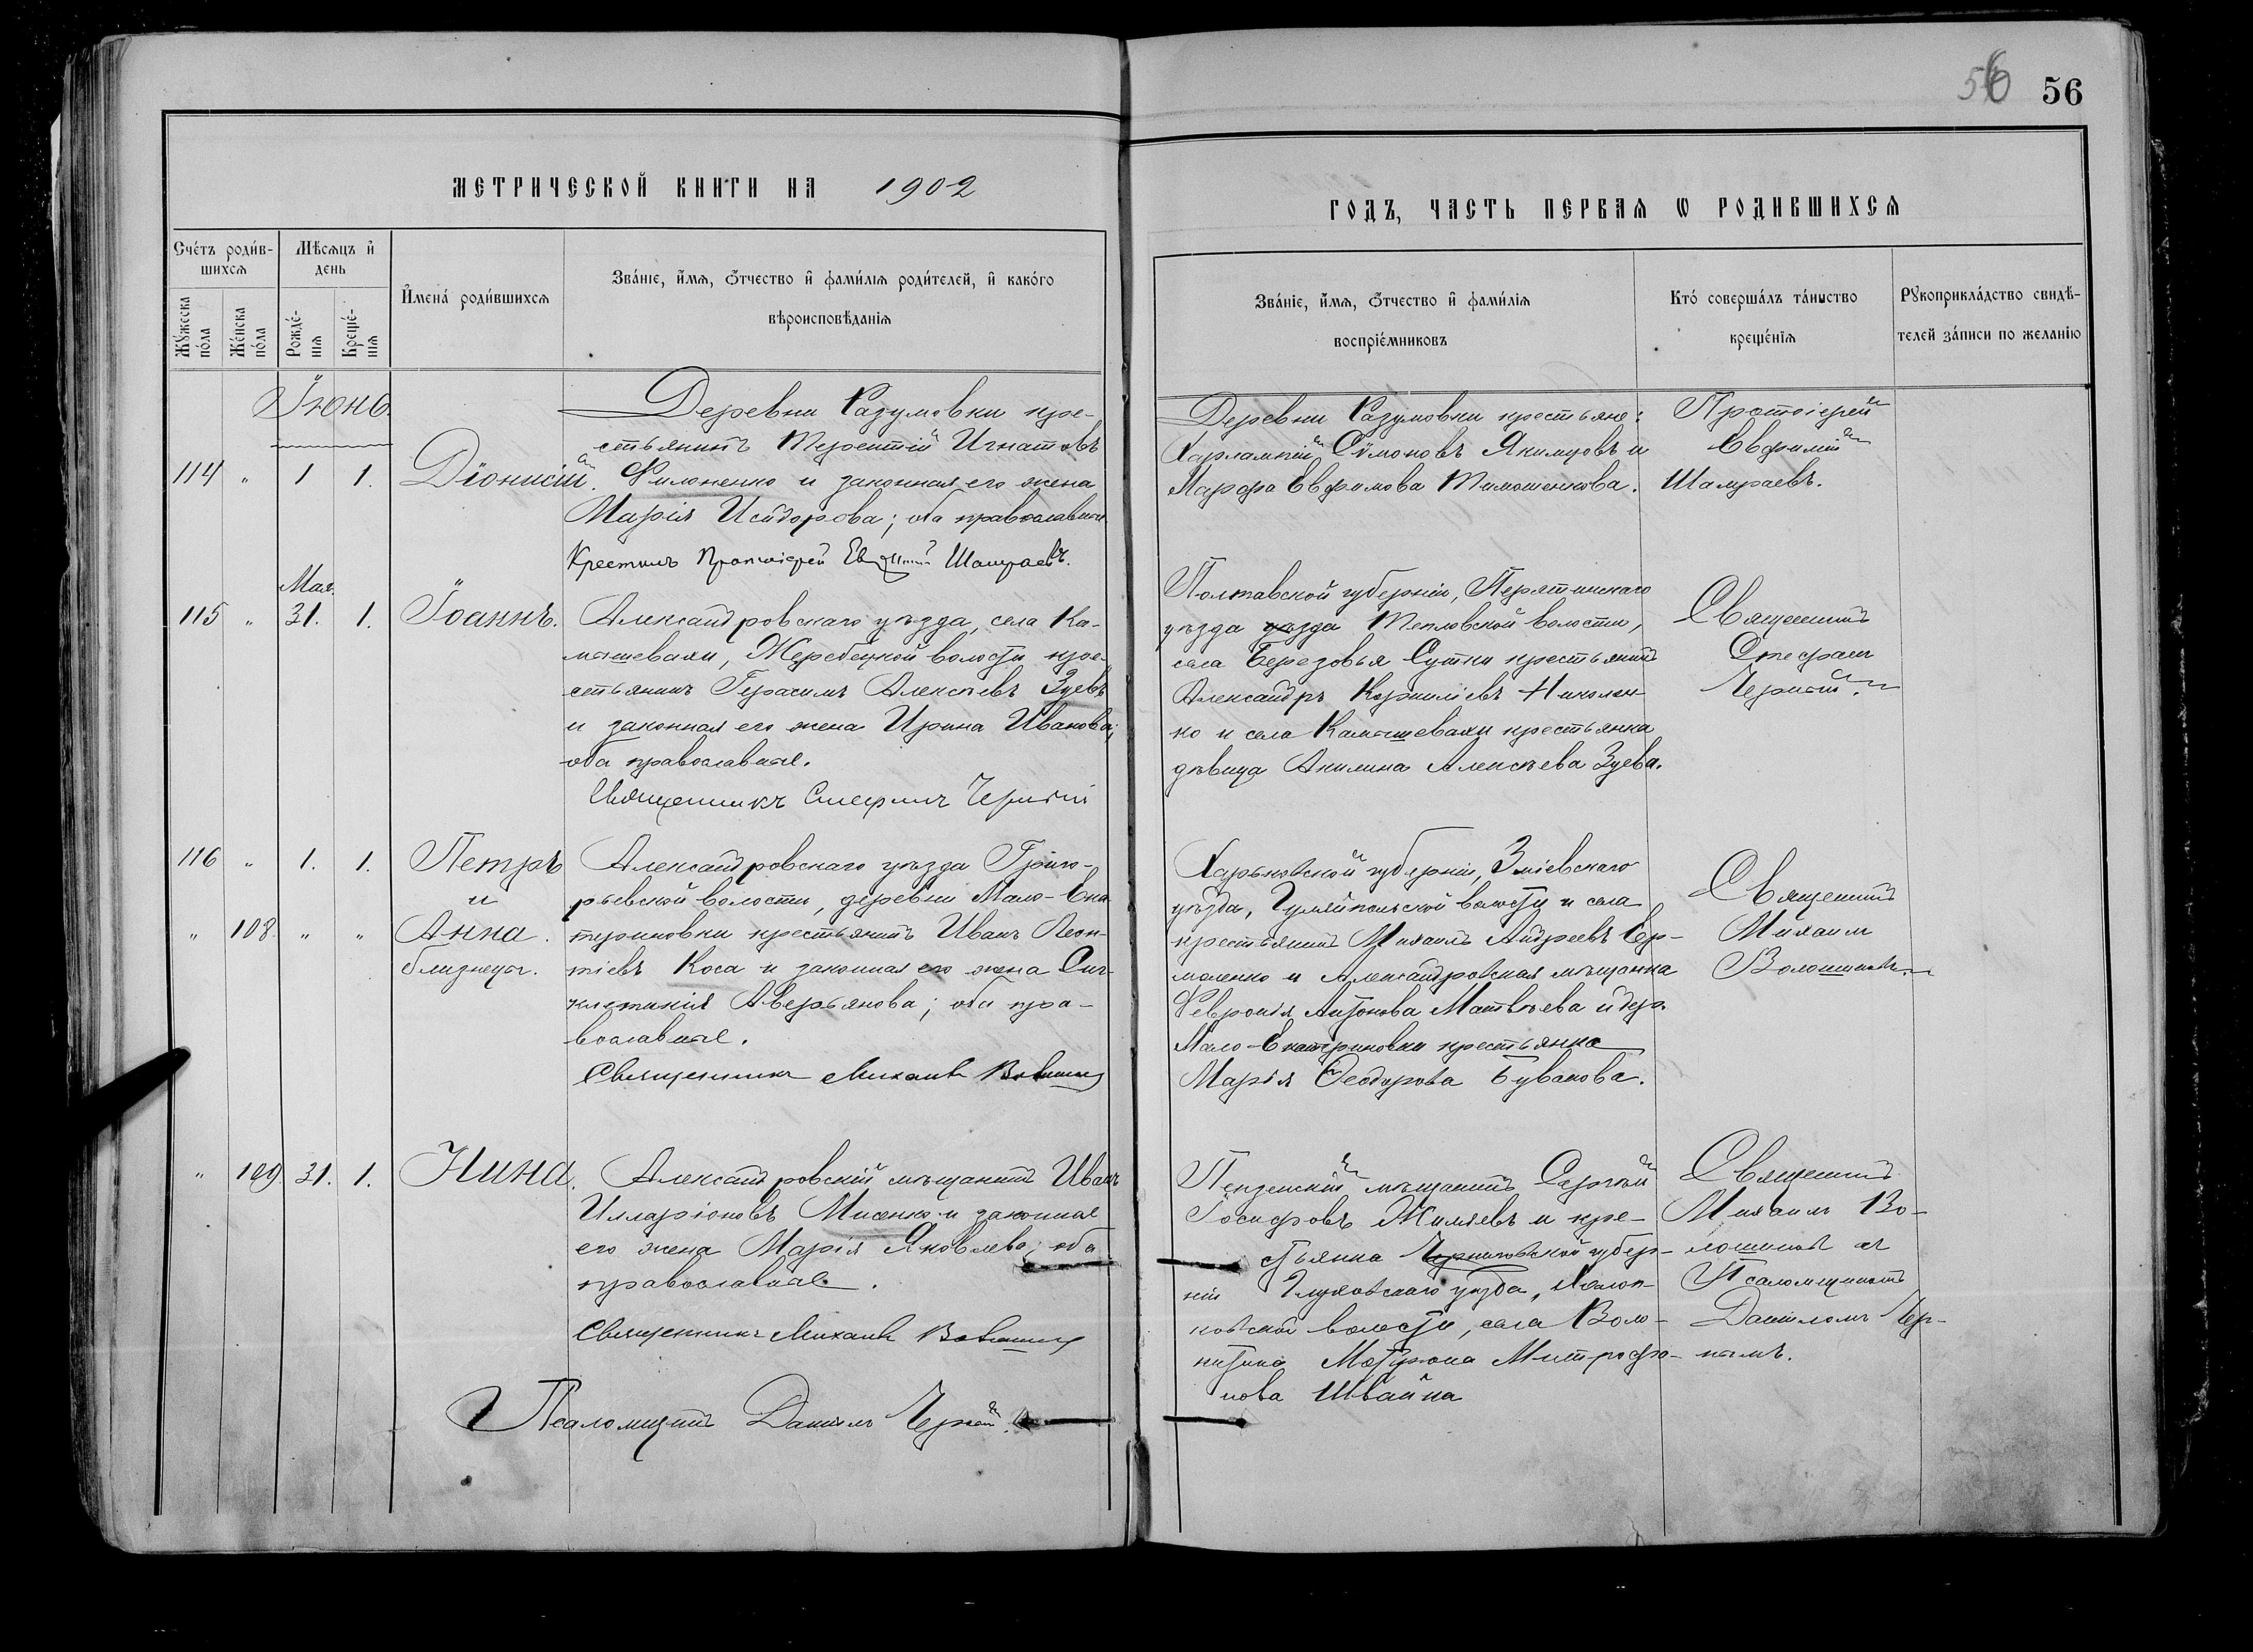 56 56
МЕТРИЧЕСКОЙ КНИГИ НА 1902
ГОДЪ, ЧАСТЬ ПЕРВАЯ Ѡ РОДИВШИХСЯ
Сче́тъ роди́в-
шихсѧ
Мѣсѧцъ и҆
день
И҆мена́ роди́вшихсѧ
Зва́нїе, и҆́мѧ, ѻ҆́тчество и҆ фами́лїѧ роди́телей, и҆ како́го
вѣроисповѣ́данїѧ
Мꙋ́жеска
по́ла
Же́нска
по́ла
Рожде́-
нїѧ
Креще́-
нїѧ
Зва́нїе, и҆́мѧ, ѻ҆́тчество и҆ фами́лїѧ
воспрїе́мниковъ
Кто̀ соверша́лъ та́инство
креще́нїѧ
Рꙋкоприкла́дство свидѣ́-
телей за́писи по жела́нїю
Іюнь.
114 " 1 1. Діонисій.
Деревни Разумовки кре-
стьянинъ Терентій Игнатовъ
Филоненко и законная его жена
Марія Исидорова; оба православные
Крестилъ Протоіерей Евфимій Шамраевъ.
Деревни Разумовки крестьяне:
Харлампій Сѵмоновъ Якимцовъ и
Марфа Евфимова Тимошенкова.
Протоіерей
Евфимій
Шамраевъ.
Мая.
115 " 31. 1. Іоаннъ.
Александровскаго уѣзда, села Ка-
мышевахи, Жеребецкой волости кре-
стьянинъ Герасимъ Алексѣевъ Зуевъ
и законная его жена Ирина Иванова;
оба православные.
Священникъ Стефанъ Черный
Полтавской губерніи, Пирятинскаго
уѣзда уѣзда Тепловской волости,
села Березовыя Сутки крестьянинъ
Александръ Корниліевъ Николен-
ко и села Камышевахи крестьянка
дѣвица Акилина Алексѣева Зуева.
Священникъ
Стефанъ
Черный.
116 " 1. 1. Петръ
и
" 108 " " Анна.
близнецы.
Александровскаго уѣзда Григо-
рьевской волости, деревни Мало-Ека
териновки крестьянинъ Иванъ Леон-
тіевъ Коса и законная его жена Син-
клитикія Аверьянова; оба пра-
вославные.
Священникъ Михаилъ Волошиновъ
Харьковской губерніи, Зміевскаго
уѣзда, волости и села
крестьянинъ Михаилъ Андреевъ Ер-
моленко и Александровская мѣщанка
Февронія Антонова Матвѣева и дер.
Мало-Екатериновки крестьянка
Марія Ѳеодорова Буванова.
Священникъ
Михаилъ
Волошиновъ
" 109. 31. 1. Нина.
Александровскій мѣщанинъ Иванъ
Илларіоновъ Мисенко и законная
его жена Марія Яковлева; оба
православные.
Священникъ Михаилъ Волошиновъ
Псаломщикъ Даніилъ Черный.
Пензенскій мѣщанинъ Сергѣй
Іосифовъ и кре-
стьянка Черниговской губер-
ніи Глуховскаго уѣзда,
волости, села
Матрона Митрофа-
нова Швайка
Священникъ
Михаилъ Во-
лошиновъ съ
Псаломщикомъ
Даніиломъ Чер-
нымъ.